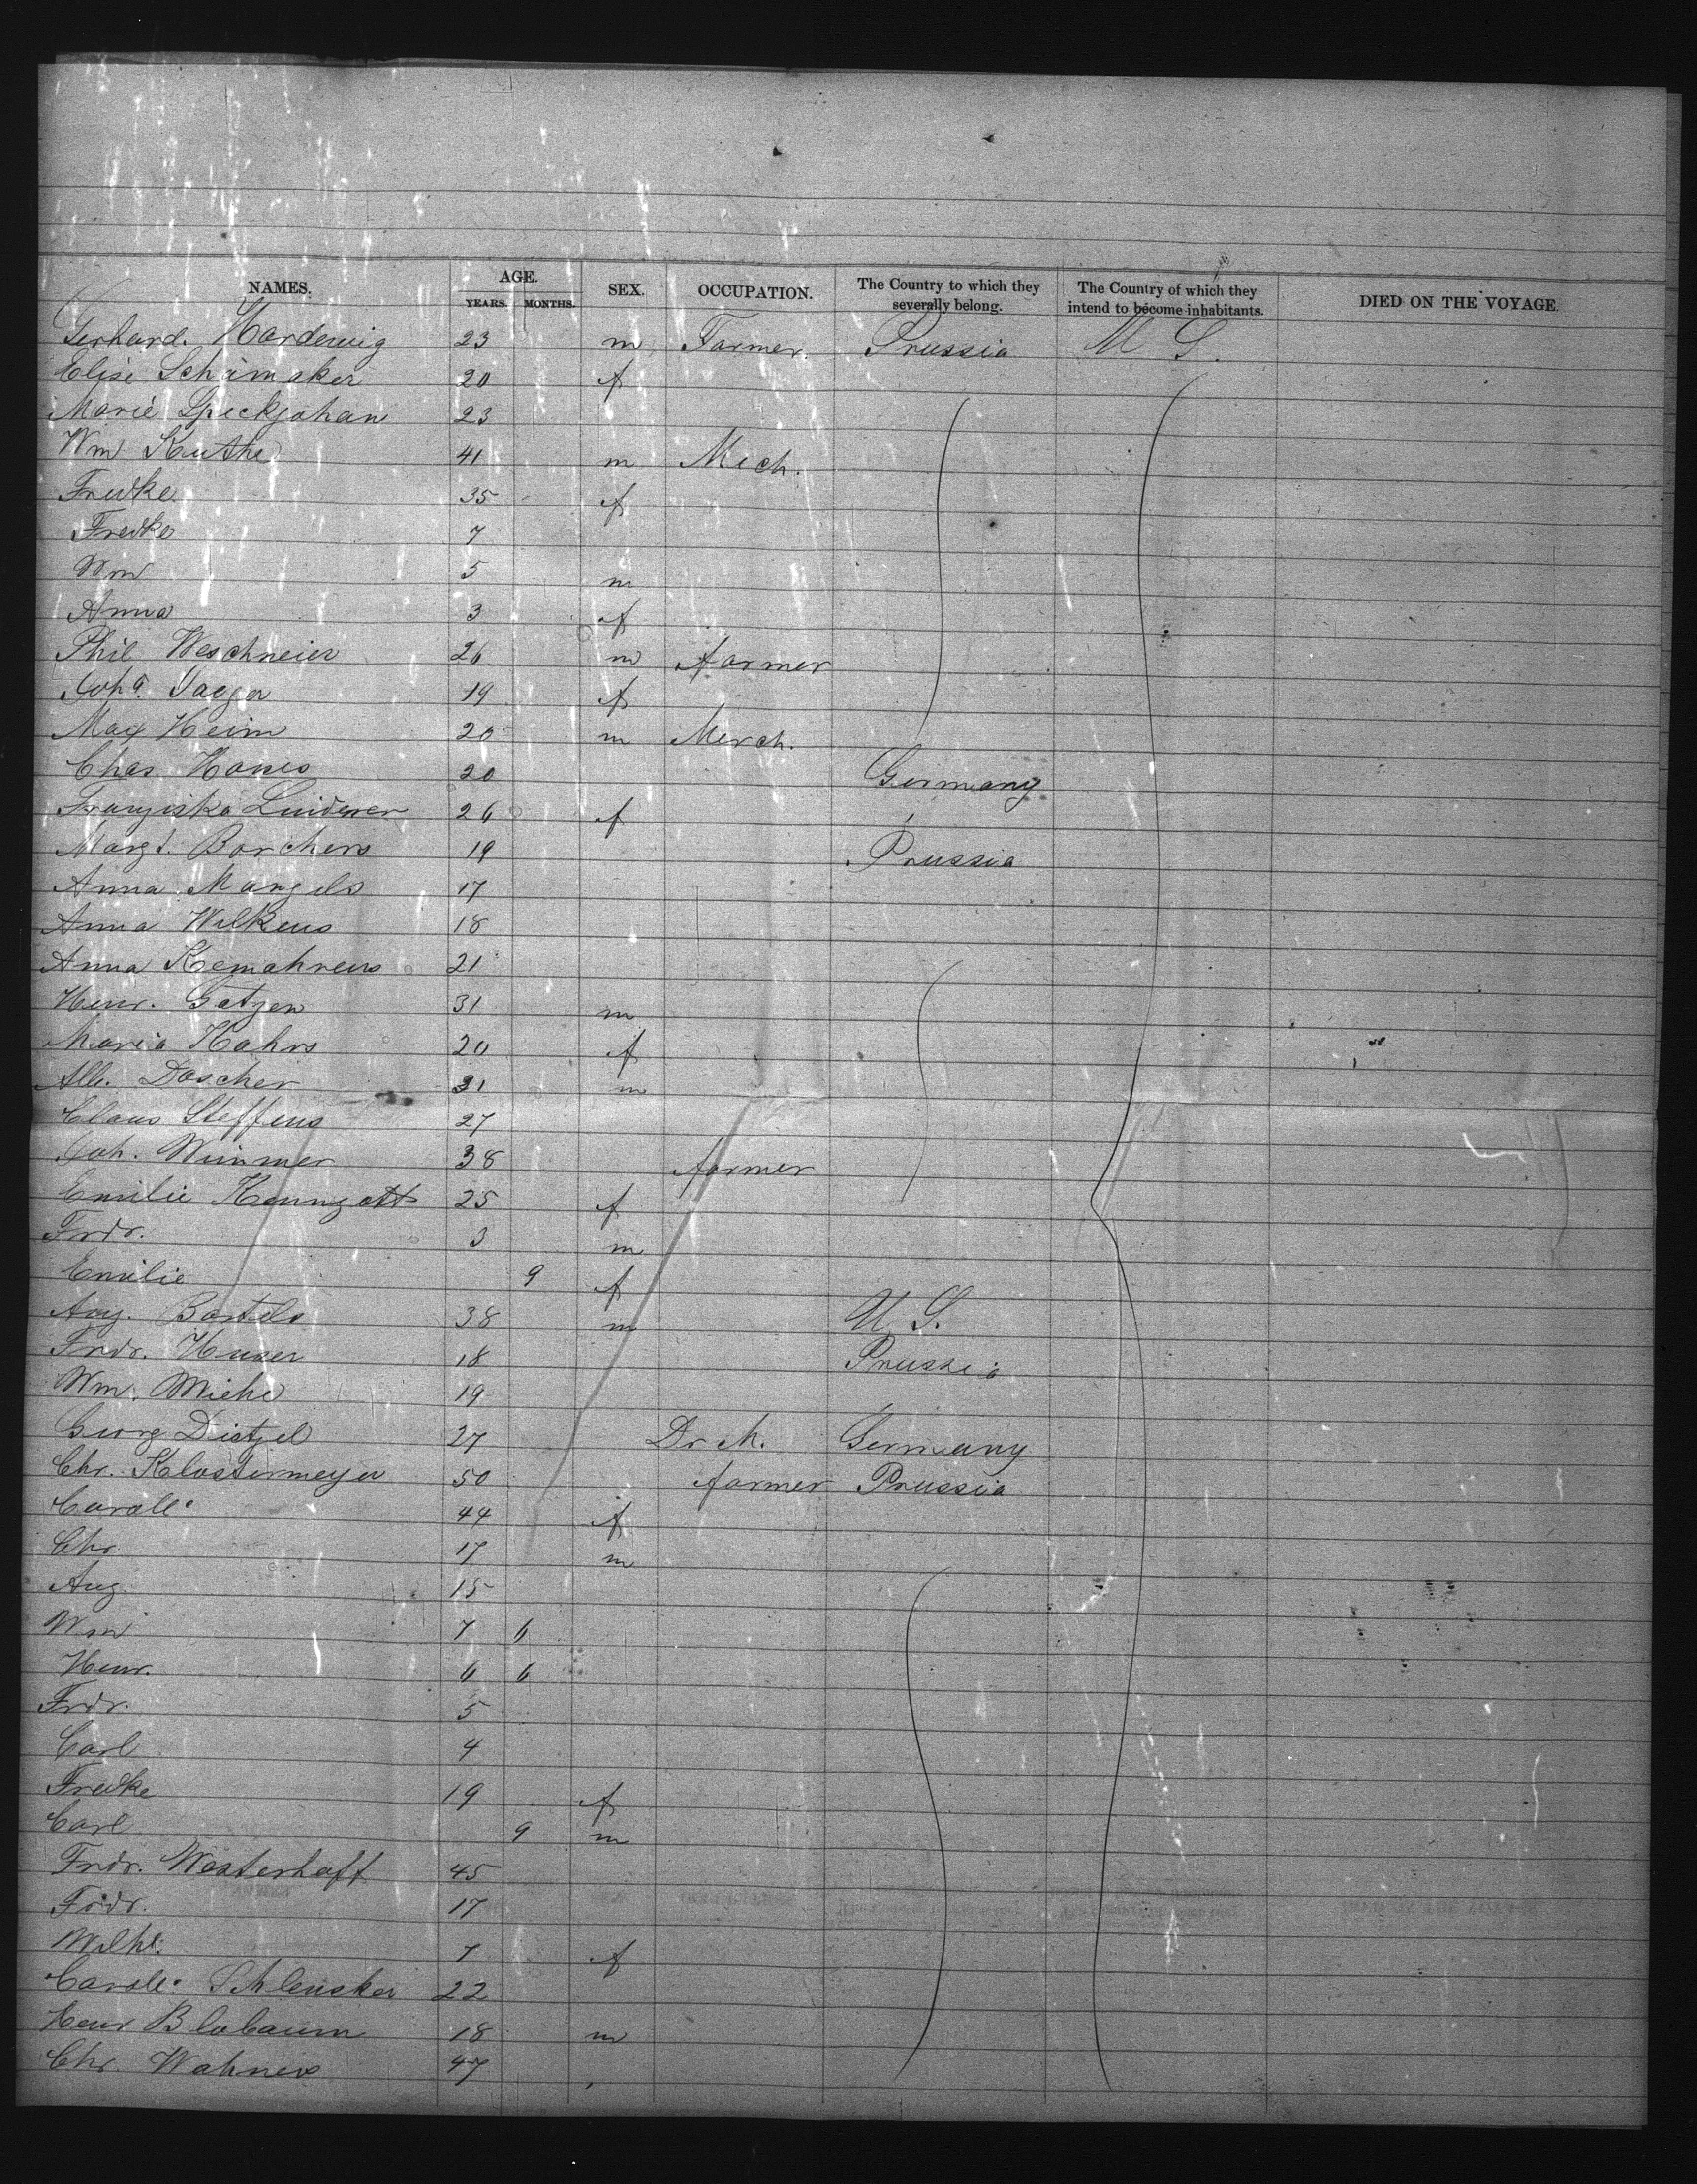 NAMES. AGE. YEARS. MONTHS. SEX. OCCUPATION. The Country to which they severally belong. The Country of which they intend to become inhabitants. DIED ON THE VOYAGE
Gerhard. Hardewig 23 m Farmer. Prussia U S.
Elise Schämaker 20 f
Marie Speckjohan 23
Wm Kuthe 41 m Mech.
Fredke 35 f
Fredke 7
Wm 5 m
Anna 3 f
Phil Weschneier 26 m farmer
Joha. Jaeger 19 f
Max Heim 20 m Merch.
Chas. Hones 20 Germany
Franziska 26 f
Margt. Borchers 19 Prussia
Anna Mangels 17
Anna Wilkens 18
Anna 21
Henr. Gatzen 31 m
Maria Kahrs 20 f
Alb. Doscher 31 m
Claus Steffens 27
Joh. Wimmer 38 farmer
Emilie Kenngott 25 f
Frdr. 3 m
Emilie 9 f
Aug. Bartels 38 m U S.
Frdr. Huser 18 Prussia
Wm. Miehe 19
Georg Dietzel 27 Germany
Chr. Klostermeyer 50 farmer Prussia
Carole 44 f
Chr. 17 m
Aug. 15
Wm 7 6
Henr. 6 6
Frdr. 5
Carl 4
Fredke 19 f
Carl 9 m
Frdr. Westerhaft 45
Frdr. 17
Wilhe. 7 f
Carole. Schlensker 22
Henr Blobaum 18 m
Chr. Wahner 47